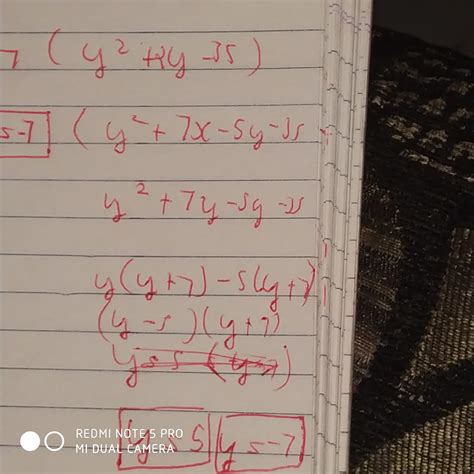 7 ( y² + 2y - 35 )
= -7 ( y² + 7x - 5y - 35
y² + 7y - 5y - 35
y(y+7) - 5(y+7)
(y-5)(y+7)
y = 5 y = -7
REDMI NOTE 5 PRO
MI DUAL CAMERA